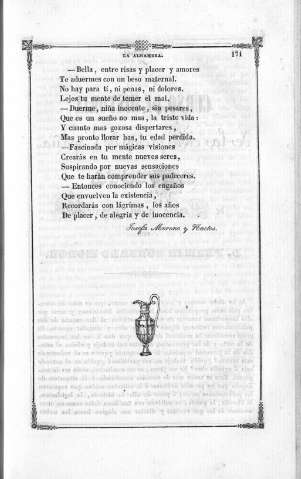 LA ALHAMBRA. 171
—Bella, entre risas y placer y amores
Te aduermes con un beso maternal.
No hay para tí, ni penas, ni dolores,
Lejos tu mente de temer el mal.
—Duerme, niña inocente, sin pesares,
Que es un sueño no mas, la triste vida:
Y cuanto mas gozosa dispertares,
Mas pronto llorar has, tu edad perdida.
—Fascinada por mágicas visiones
Crearás en tu mente nuevos seres,
Suspirando por nuevas sensaciones
Que te harán comprender sus padeceres.
—Entonces conociendo los engaños
Que envuelven la existencia,
Recordarás con lágrimas, los años
De placer, de alegria y de inocencia.
Josefa Moreno y Nartos.